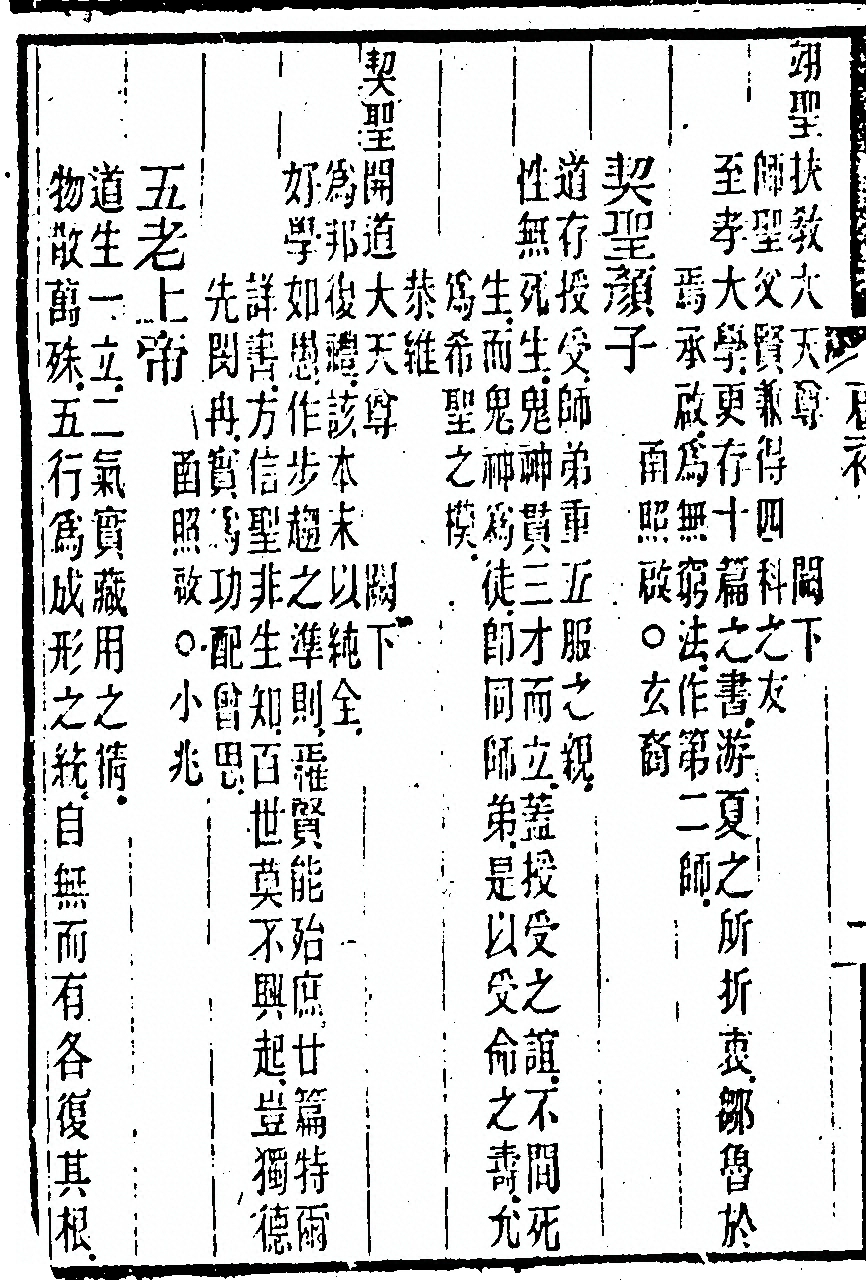 翊聖扶教大天尊　闕下
師聖父賢兼得四科之友
至孝大學更存十篇之書游夏之所折衷鄒魯於
焉承啟為無窮法作第二師
甬照啟○玄裔
契聖顏子
道存授受師弟重五服之親
性無死生鬼神貫三才而立蓋授受之誼不間死
生而鬼神為徒卽同師弟是以受命之壽允
為希聖之模
恭維
契聖開道大天尊　闕下
為邦復禮該本末以純全
好學如愚作步趨之準則羅賢能殆庶廿篇特爾
詳書方信聖非生知百世莫不興起豈獨德
先閔冉實為功配曾思
甬照啟○小兆
五老上帝
道生一立二氣實藏用之精
物散萬殊五行為成形之統自無而有各復其根